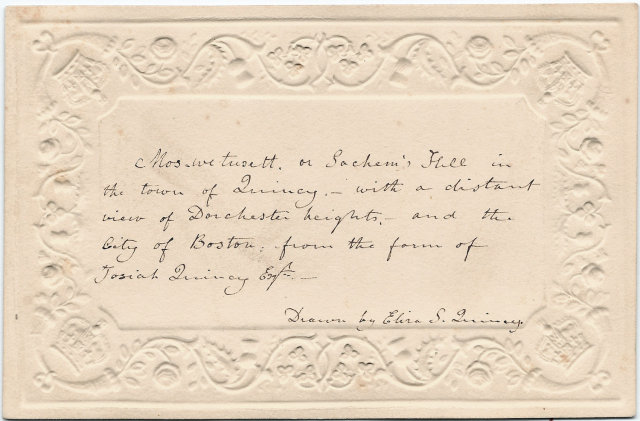 Mos-wetusett. or Sachem's Hill in
the town of Quincy, – with a distant
view of Dorchester heights, – and the
City of Boston: from the farm of
Josiah Quincy Esqr. –
Drawn by Eliza S. Quincy.